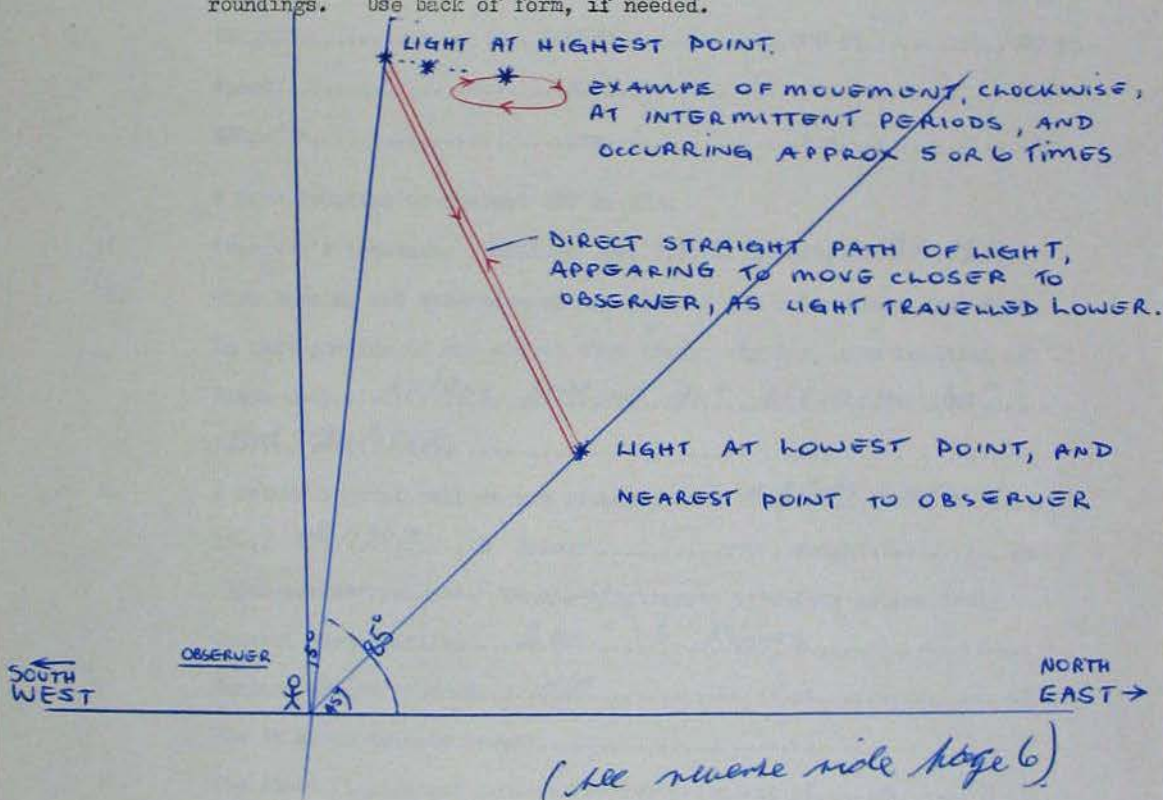 roundings. Use back of form, if needed.
LIGHT AT HIGHEST POINT.
EXAMPE OF MOVEMENT, CLOCKWISE,
AT INTERMITTENT PERIODS, AND
OCCURRING APPROX 5 OR 6 TIMES
DIRECT STRAIGHT PATH OF LIGHT,
APPEARING TO MOVE CLOSER TO
OBSERVER, AS LIGHT TRAVELLED LOWER.
LIGHT AT LOWEST POINT, AND
NEAREST POINT TO OBSERVER
85°
45°
OBSERVER
SOUTH
WEST
NORTH
EAST
(see reverse side page 6)